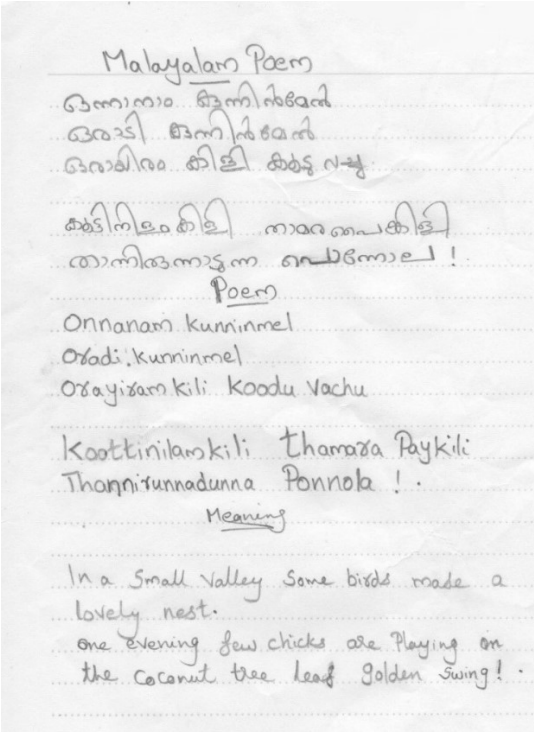 Malayalam Poem
ഒന്നാനാം കുന്നിൻമേൽ
ഒരാടി കുന്നിൻമേൽ
ഒരായിരം കിളി കൂടു വച്ചു.
കൂട്ടിനിളംകിളി താമരപൈകിളി
താന്നിരുന്നാടുന്ന പൊന്നോല !
Poem
Onnanam Kunninmel
Oradi. Kunninmel
Orayiram Kili Koodu Vachu
Koottinilamkili Thamara Paykili
Thannirunnadunna Ponnola ! .
Meaning
In a Small Valley Some birds made a
lovely nest.
one evening few chicks are Playing on
the Coconut tree leaf golden Swing! .